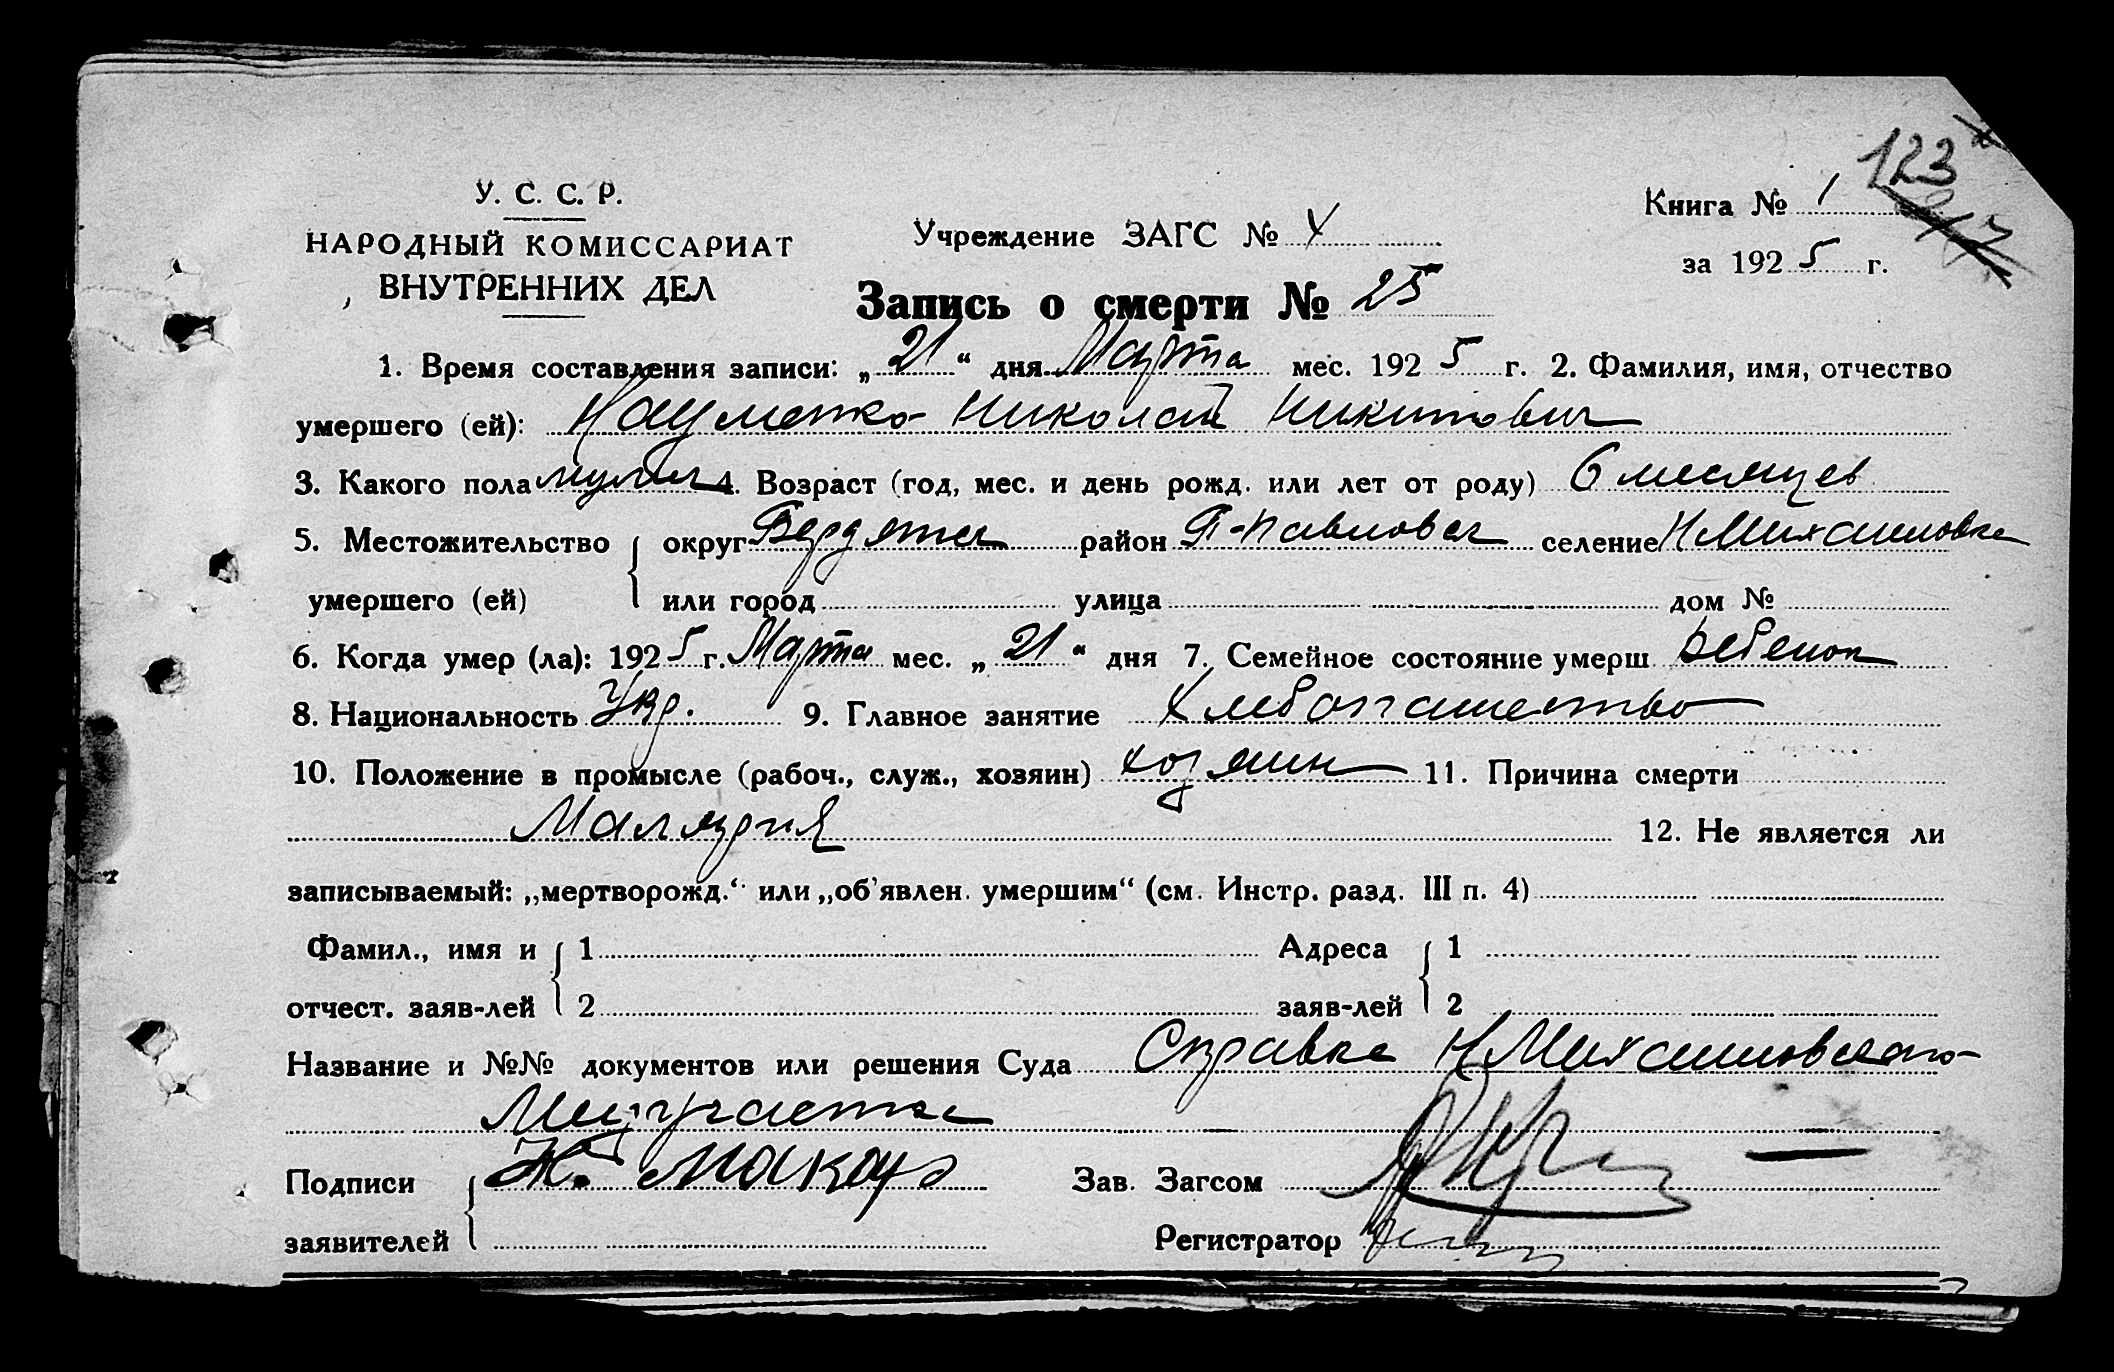 123
У. С. С. Р.
НАРОДНЫЙ КОМИССАРИАТ
ВНУТРЕННИХ ДЕЛ
Учреждение ЗАГС №
Книга № 1
за 1925 г.
Запись о смерти № 25
1. Время составления записи: „21“ дня Марта мес. 1925 г. 2. Фамилия, имя, отчество
умершего (ей): Науменко Николай Никитович
3. Какого пола мужск 4. Возраст (год, мес. и день рожд. или лет от роду) 6 месяцев
5. Местожительство умершего (ей) { округ Бердянск район П-Павловск селение Н Михайловка
или город улица дом №
6. Когда умер (ла): 1925 г. Марта мес. „21“ дня 7. Семейное состояние умерш ребенок
8. Национальность Укр. 9. Главное занятие Хлебопашество
10. Положение в промысле (рабоч., служ., хозяин) хозяин 11. Причина смерти
Малярия 12. Не является ли
записываемый: „мертворожд.“ или „об’явлен. умершим“ (см. Инстр. разд. III п. 4)
Фамил., имя и { 1 Адреса { 1
отчест. заяв-лей { 2 заяв-лей { 2
Название и №№ документов или решения Суда Справка Н Михайловского
Медучастка
Подписи Зав. Загсом
заявителей Регистратор